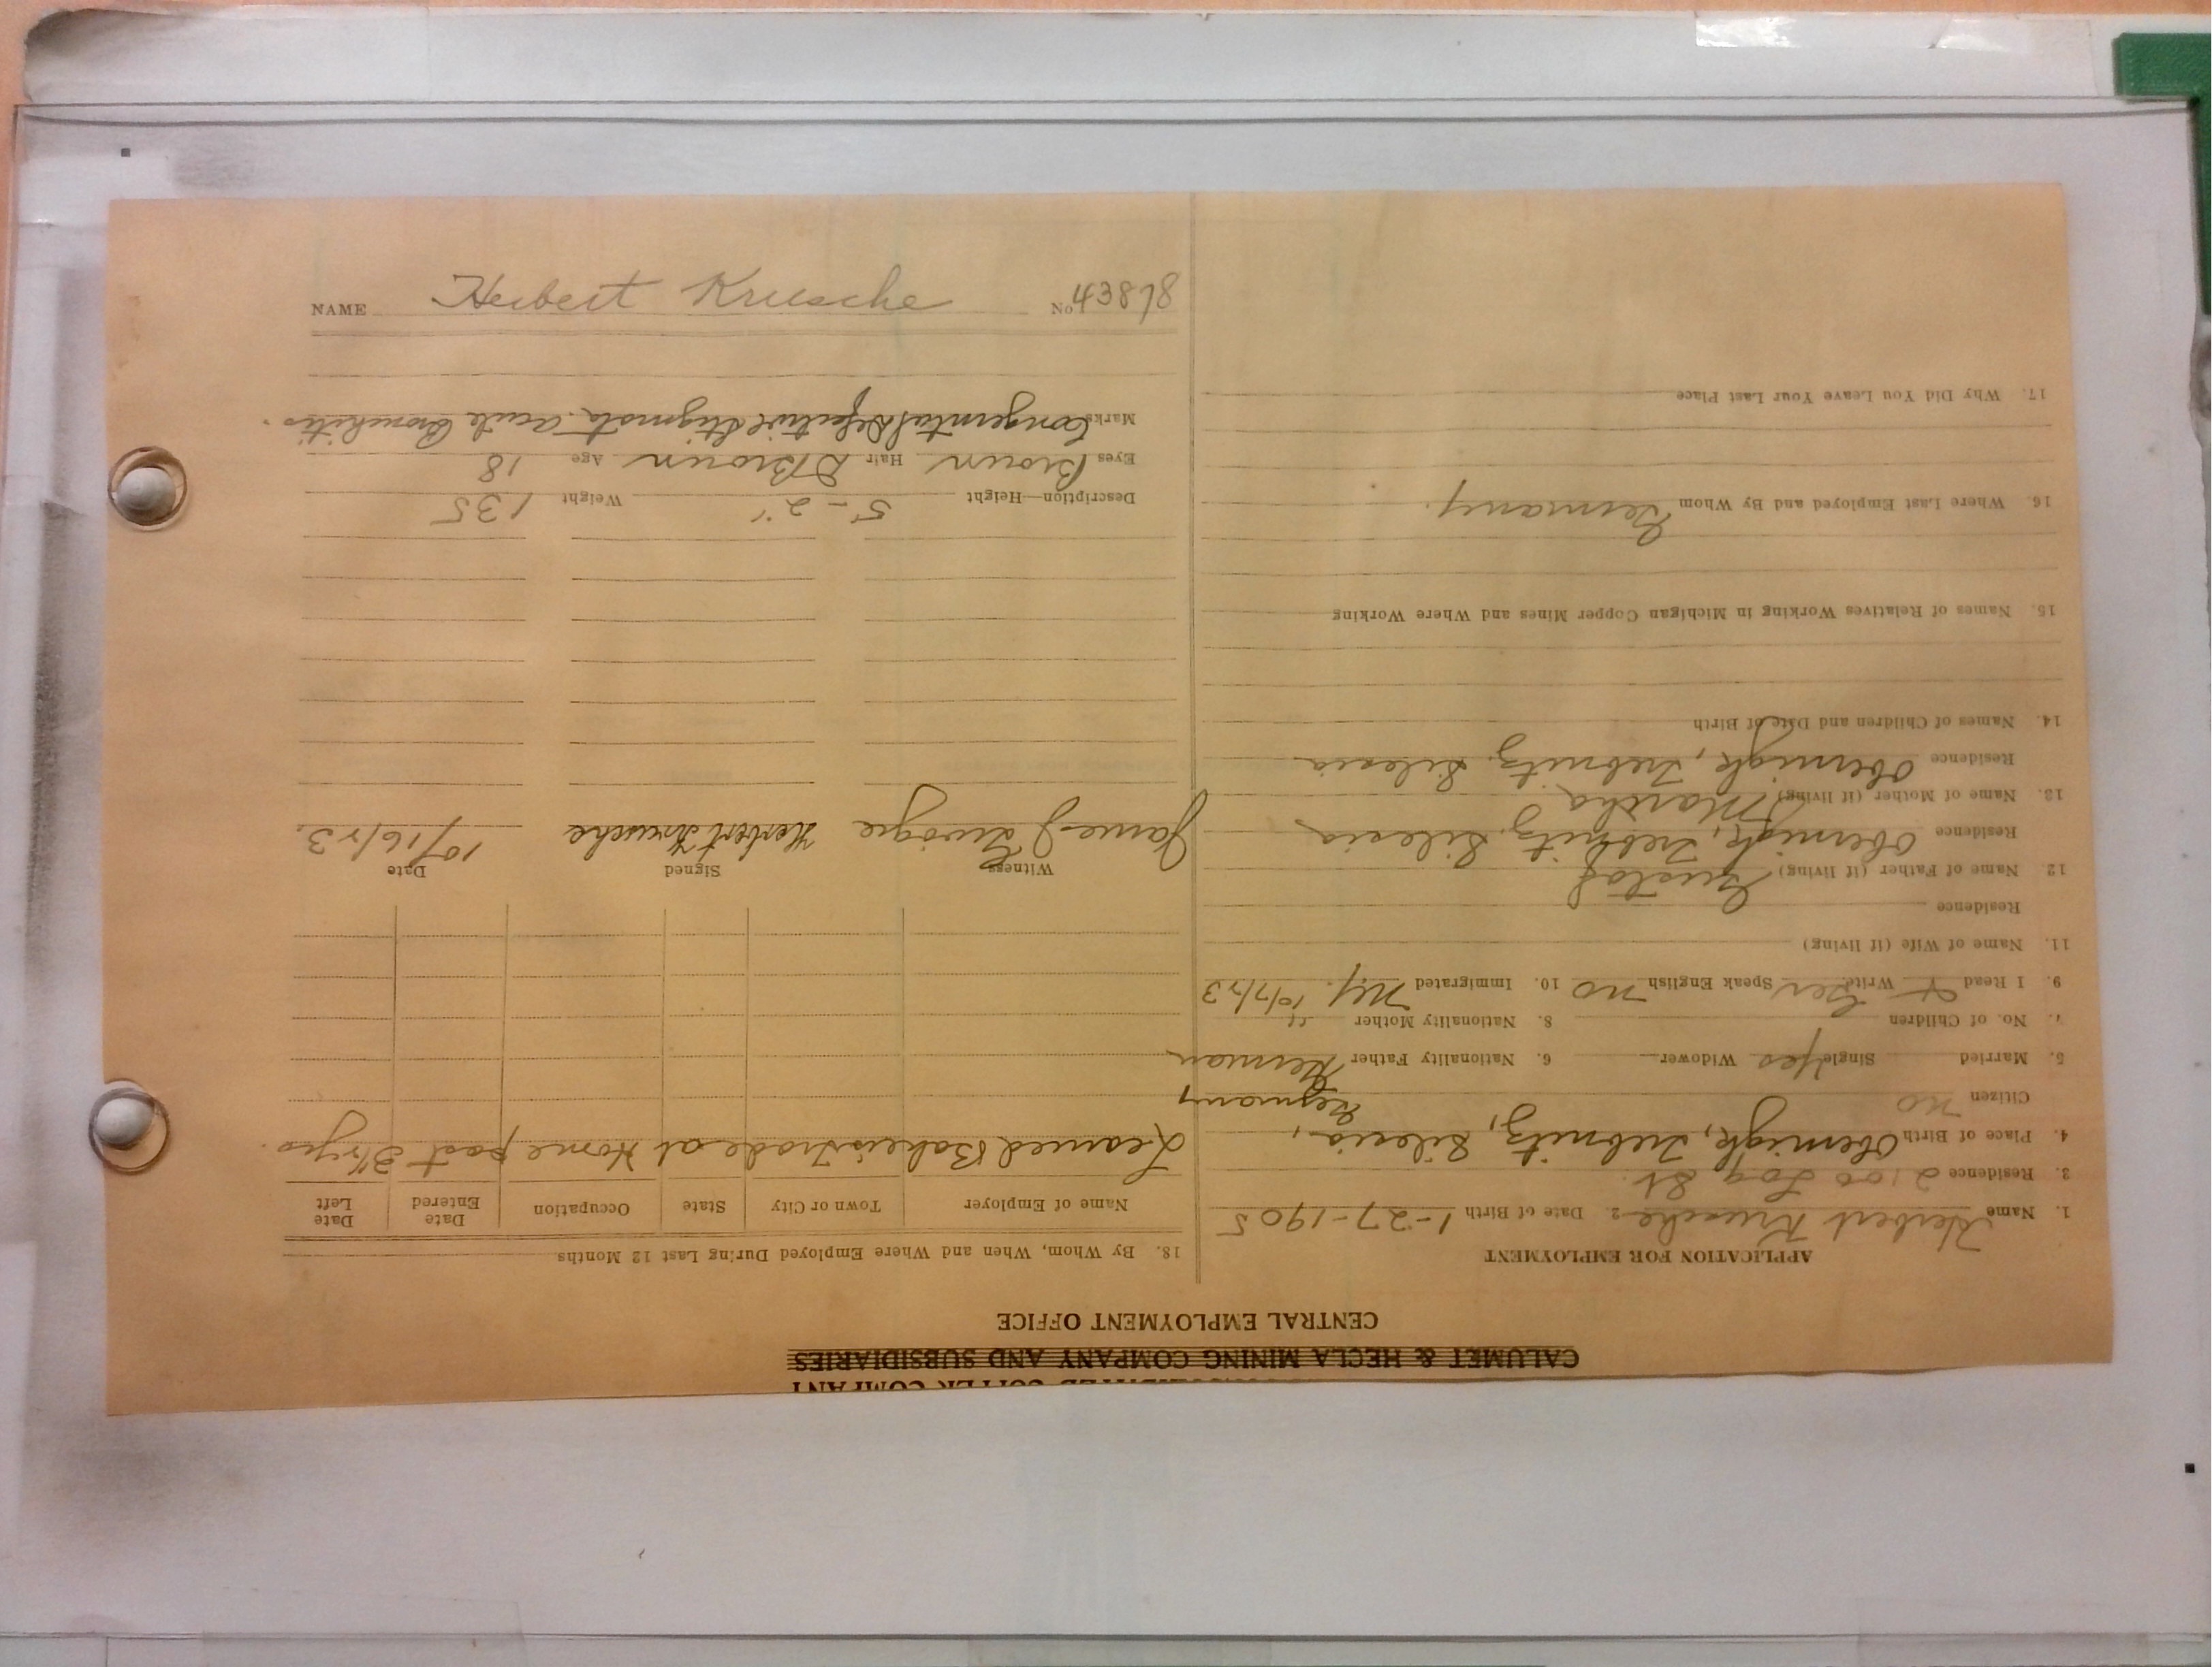 CALUMET & HECLA MINING COMPANY AND SUBSIDIARIES
CENTRAL EMPLOYMENT OFFICE
APPLICATION FOR EMPLOYMENT
1. Name Herbert Krusche 2. Date of Birth 1-27-1905
3. Residence 2100 Log St.
4. Place of Birth Obernigk, Trebnitz, Silesia, Germany
Citizen no
5. Married Single Yes Widower 6. Nationality Father German
7. No. of Children 8. Nationality Mother "
9. I Read & Write Ger Speak English no 10. Immigrated N.Y. 10/7/23
11. Name of Wife (if living)
Residence
12. Name of Father (if living) Gustaf
Residence Obernigk, Trebnitz, Silesia
13. Name of Mother (if living) Martha
Residence Obernigk, Trebnitz, Silesia
14. Names of Children and Date of Birth
15. Names of Relatives Working in Michigan Copper Mines and Where Working
16. Where Last Employed and By Whom Germany.
17. Why Did You Leave Your Last Place
18. By Whom, When and Where Employed During Last 12 Months
Name of Employer Town or City State Occupation Date Entered Date Left
Learned Bakers trade at Home past 3 1/2 yrs.
Witness Signed Date
Herbert Krusche 10/16/23.
Description—Height 5'-2" Weight 135
Eyes Brown Hair D Brown Age 18
Marks Congenital Defective Stigmata. acute Bronchitis.
NAME Herbert Krusche No. 43878